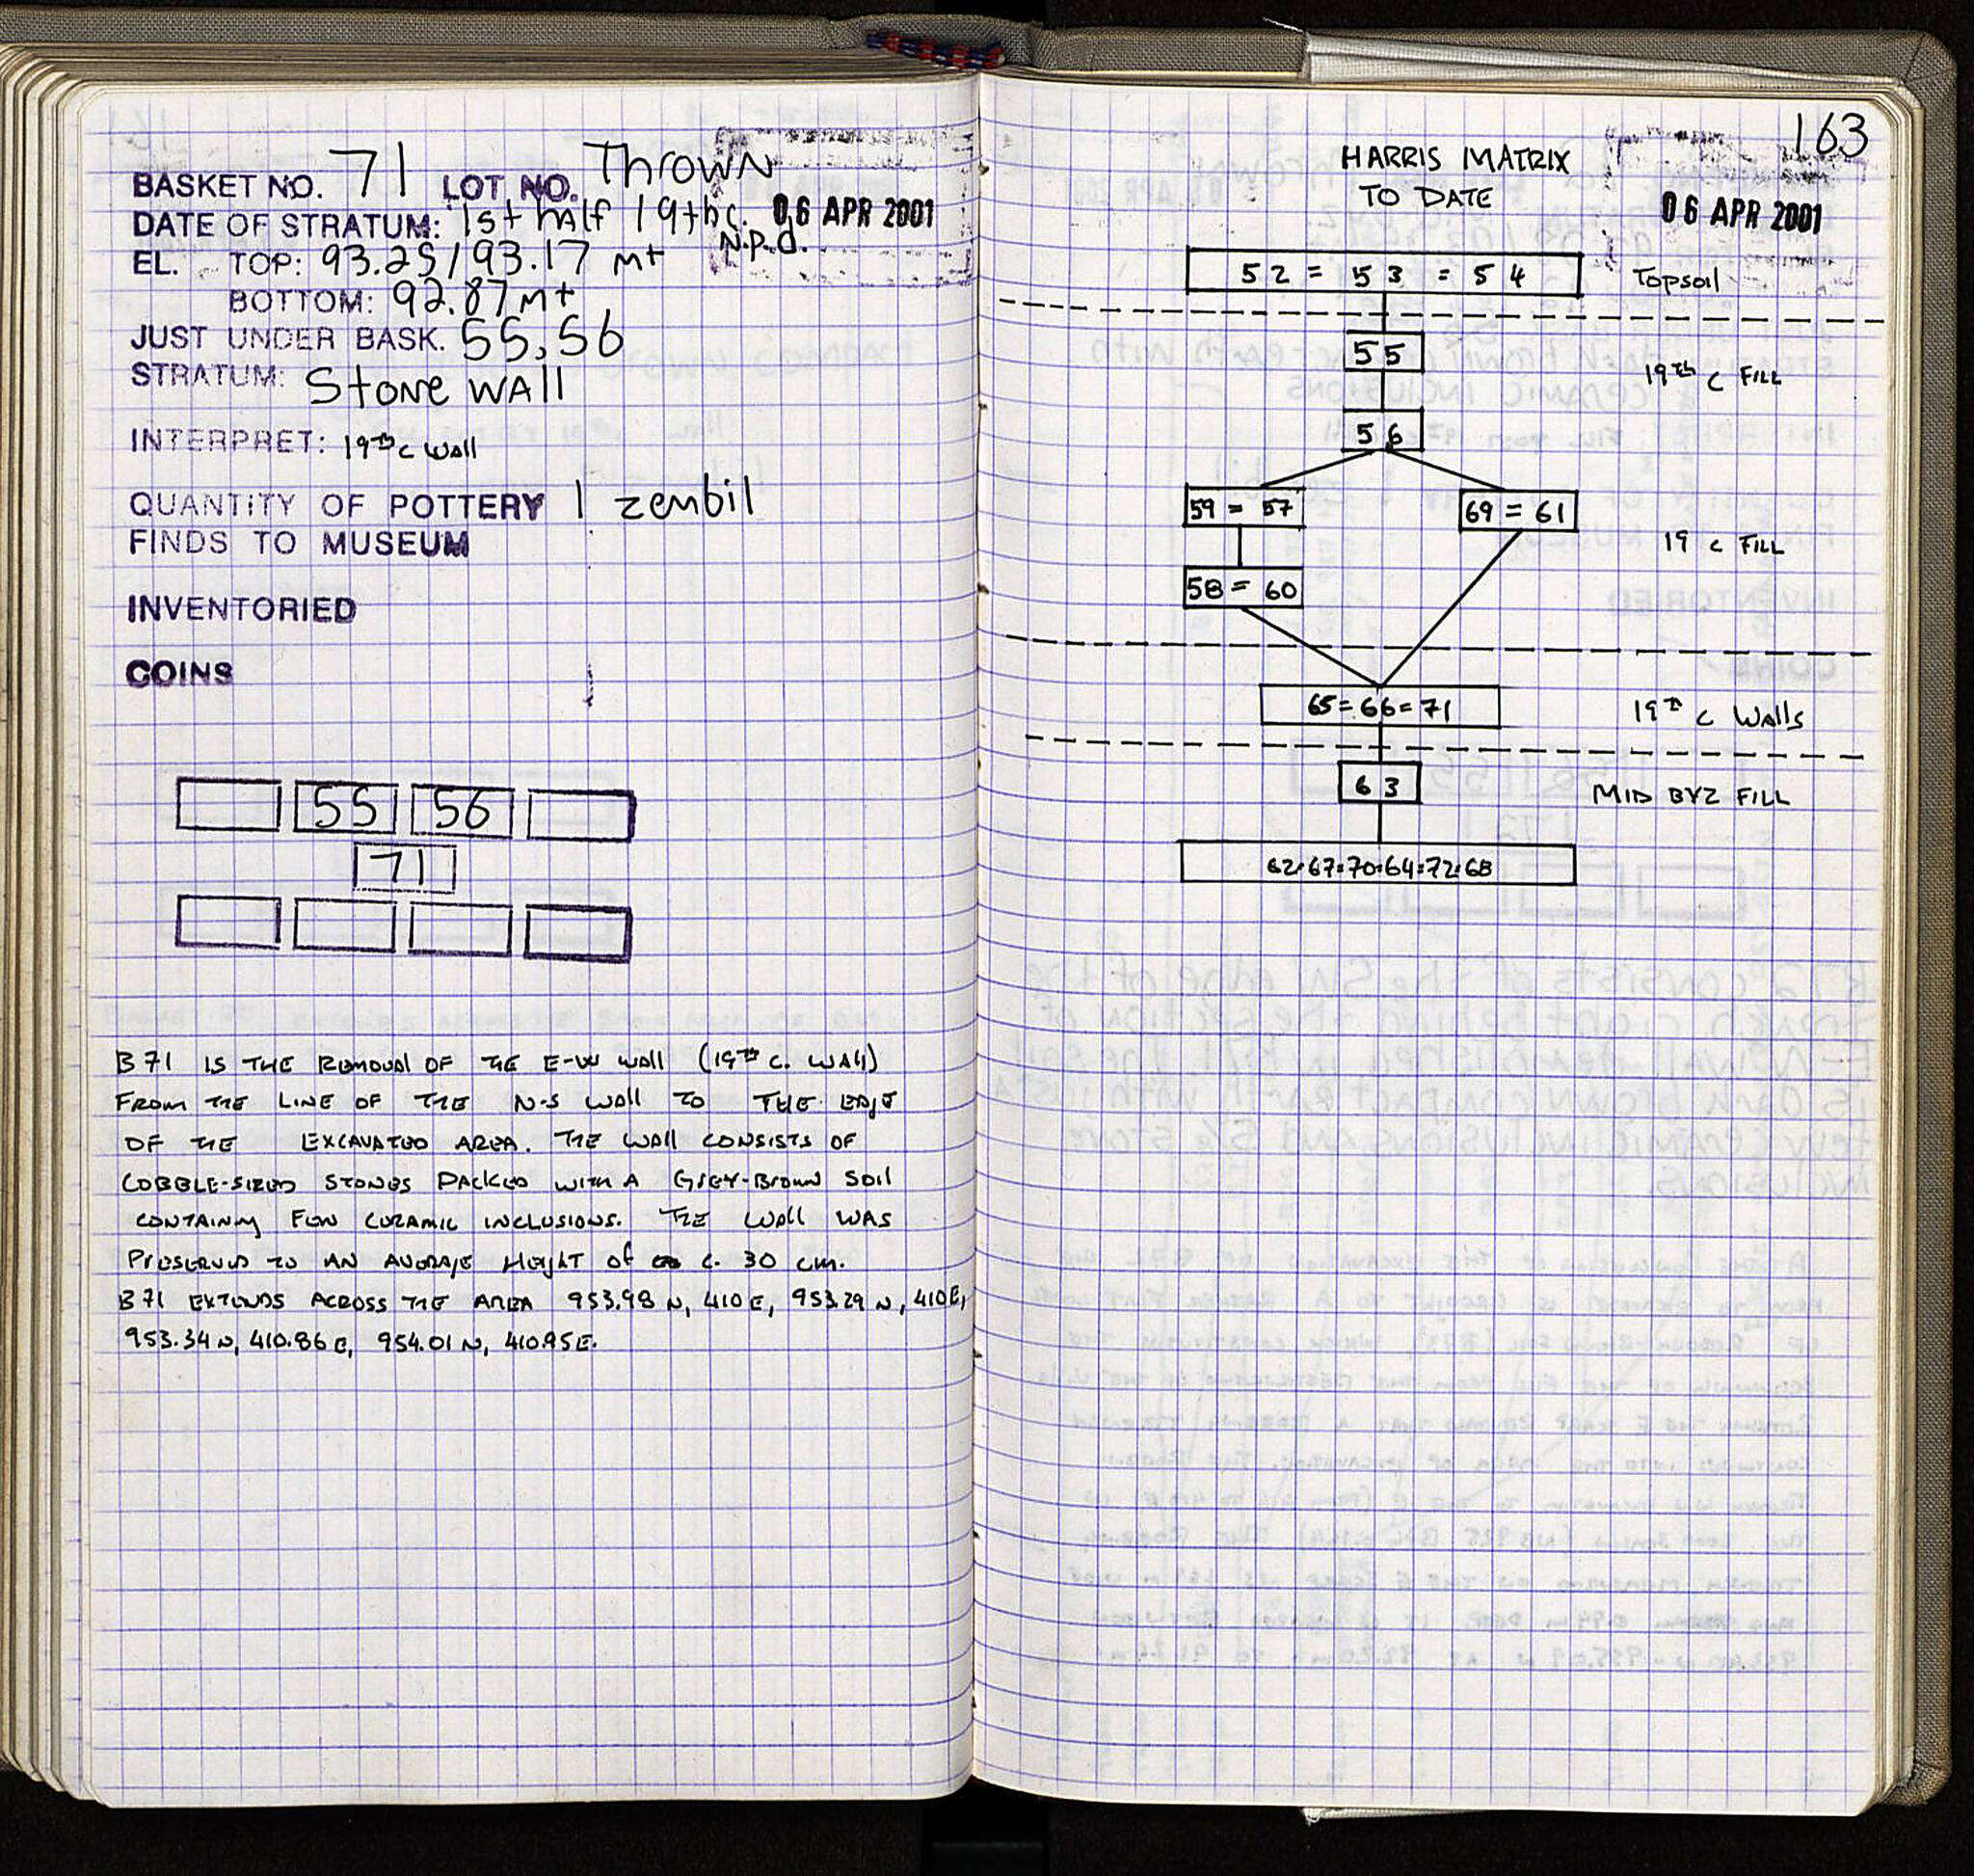 BASKET NO. 71 LOT NO. Thrown
DATE OF STRATUM: 1st half 19th c. 06 APR 2001
N.p.d.
EL. TOP: 93.25/93.17 mt
BOTTOM: 92.87mt
JUST UNDER BASK. 55,56
STRATUM: Stone wall
INTERPRET: 19th c wall
QUANTITY OF POTTERY 1 zembil
FINDS TO MUSEUM
INVENTORIED
COINS
55 56
71
B71 IS THE REMOVAL OF THE E-W WALL (19th C. WALL)
FROM THE LINE OF THE N-S WALL TO THE EDGE
OF THE EXCAVATED AREA. THE WALL CONSISTS OF
COBBLE-SIZED STONES PACKED WITH A GREY-BROWN SOIL
CONTAINING FEW CERAMIC INCLUSIONS. THE WALL WAS
PRESERVED TO AN AVERAGE HEIGHT OF C. 30 CM.
B71 EXTENDS ACROSS THE AREA 953.98 N, 410 E, 953.29 N, 410E,
953.34 N, 410.86 E, 954.01 N, 410.95E.
163
HARRIS MATRIX
TO DATE
06 APR 2001
52 = 53 = 54 Topsoil
55
19th c FILL
56
59 = 57 69 = 61
19 c FILL
58 = 60
65=66=71 19th c Walls
63 MID BYZ FILL
62=67=70=64=72=68